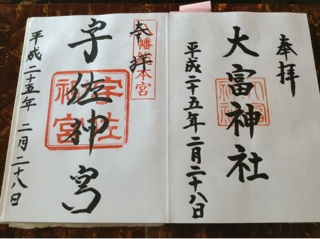 奉拝
大富神社
平成二十五年二月二十八日
奉拝
八幡総本宮
宇佐神宮
宇佐神宮
平成二十五年二月二十八日